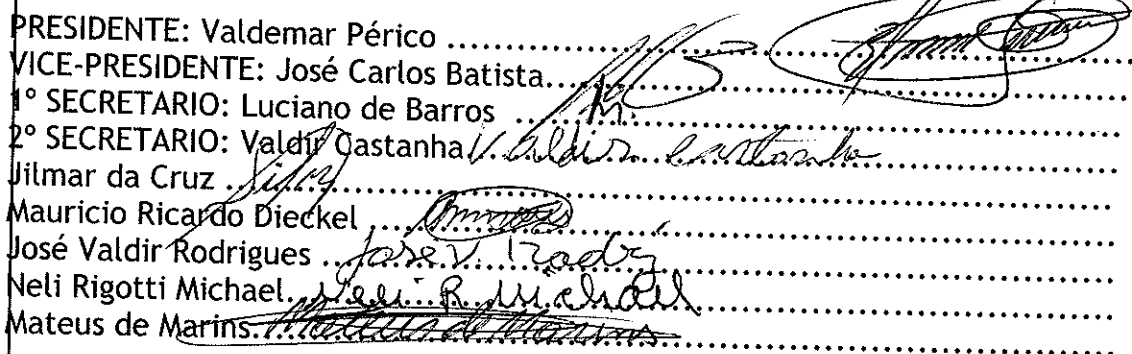 PRESIDENTE: Valdemar Périco ..........
VICE-PRESIDENTE: José Carlos Batista..........
1º SECRETARIO: Luciano de Barros ..........
2º SECRETARIO: Valdir Castanha Valdir Castanha
Jilmar da Cruz ..........
Mauricio Ricardo Dieckel ..........
José Valdir Rodrigues .......... José V. Rodri
Neli Rigotti Michael.......... Neli R. Michael
Mateus de Marins.......... Mateus de Marins